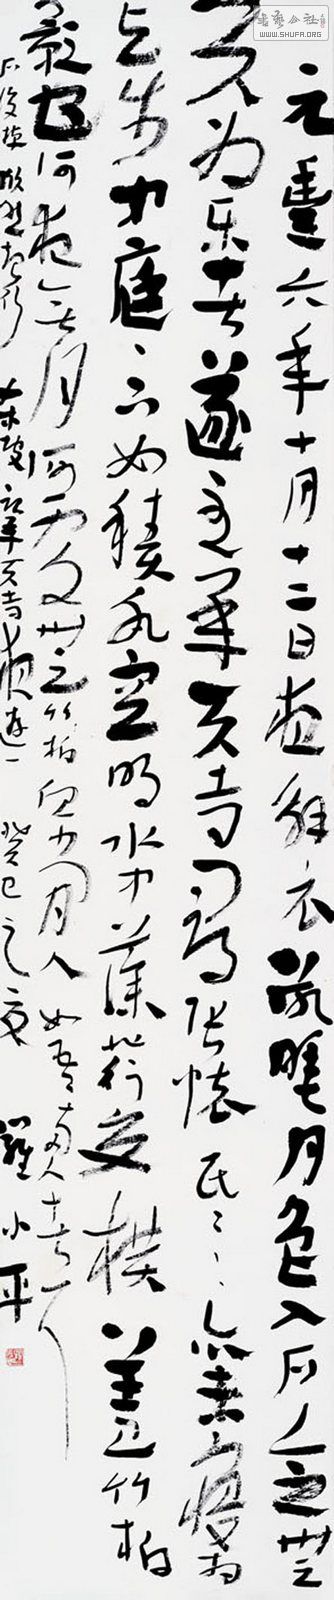 元豐六年十月十二日夜解衣欲睡月色入户念無
与为乐者遂至承天寺尋張懷民々亦未寢相
与步中庭々下如積水空明水中藻荇交橫蓋竹柏
影也何夜無月何處無竹柏但少閒人如吾兩人者耳
户後落欣然起行 東坡記承天寺夜遊 癸巳之夏 羅小平
书艺公社
WWW.SHUFA.ORG